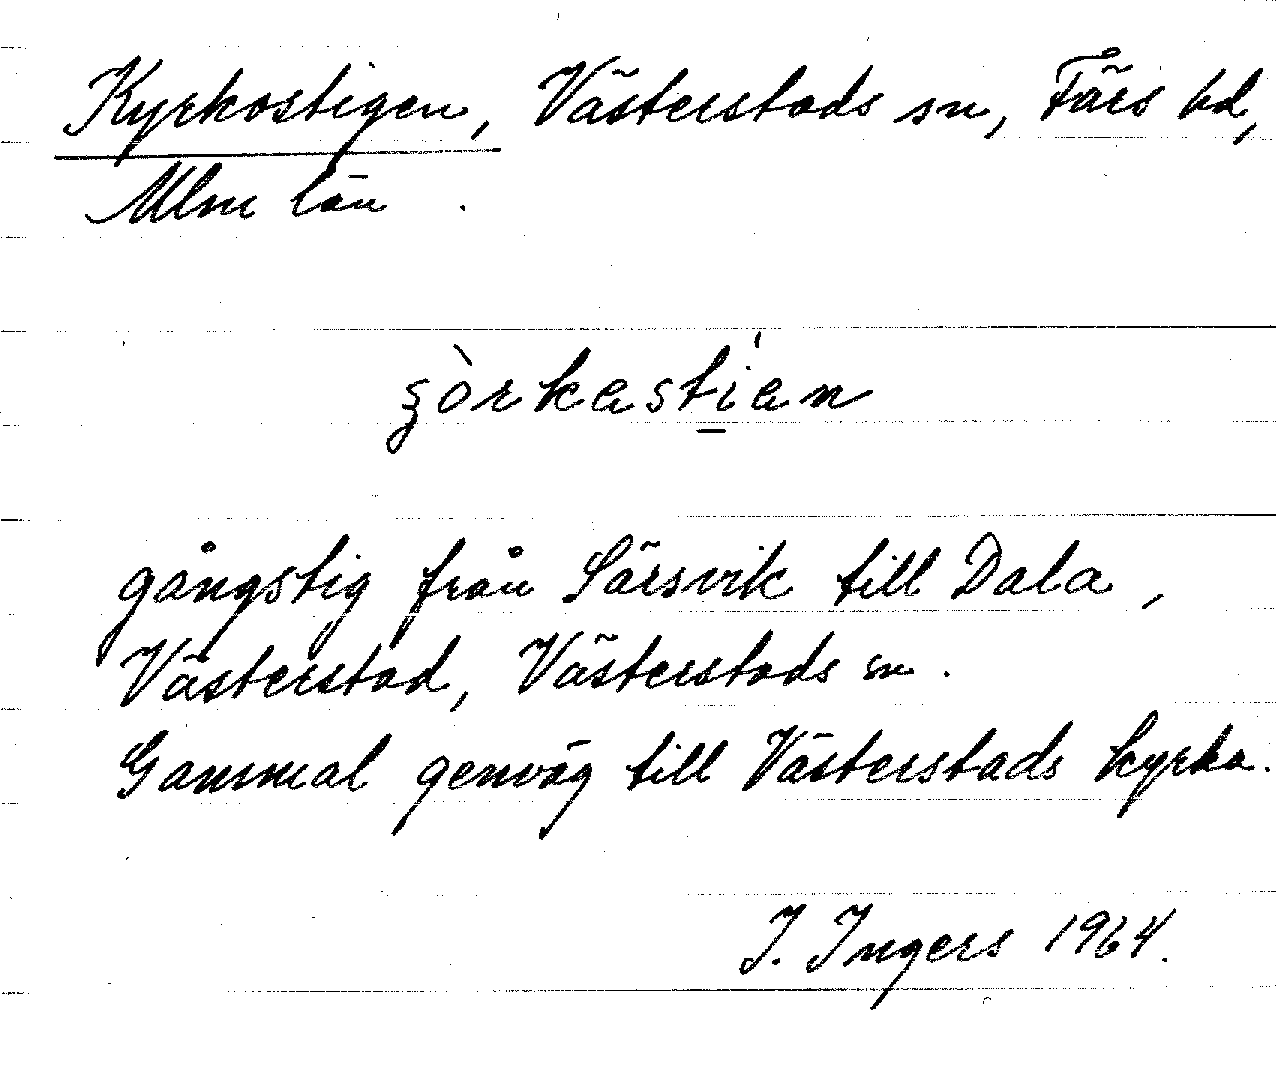 Kyrkostigen, Västerstads sn, Färs hd,
Mlm län.
ʒòrkastían
gångstig från Särsvik till Dala,
Västerstad, Västerstads sn.
Gammal genväg till Västerstads kyrka.
I. Ingers 1964.